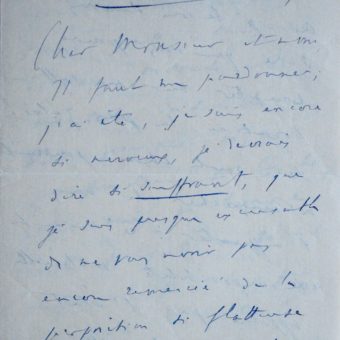 Cher Monsieur et ami
Il faut me pardonner,
j'ai été, je suis encore
si nerveux, je devrais
dire si souffrant, que
je suis presque excusable
de ne vous avoir pas
encore remercié de la
proposition si flatteuse